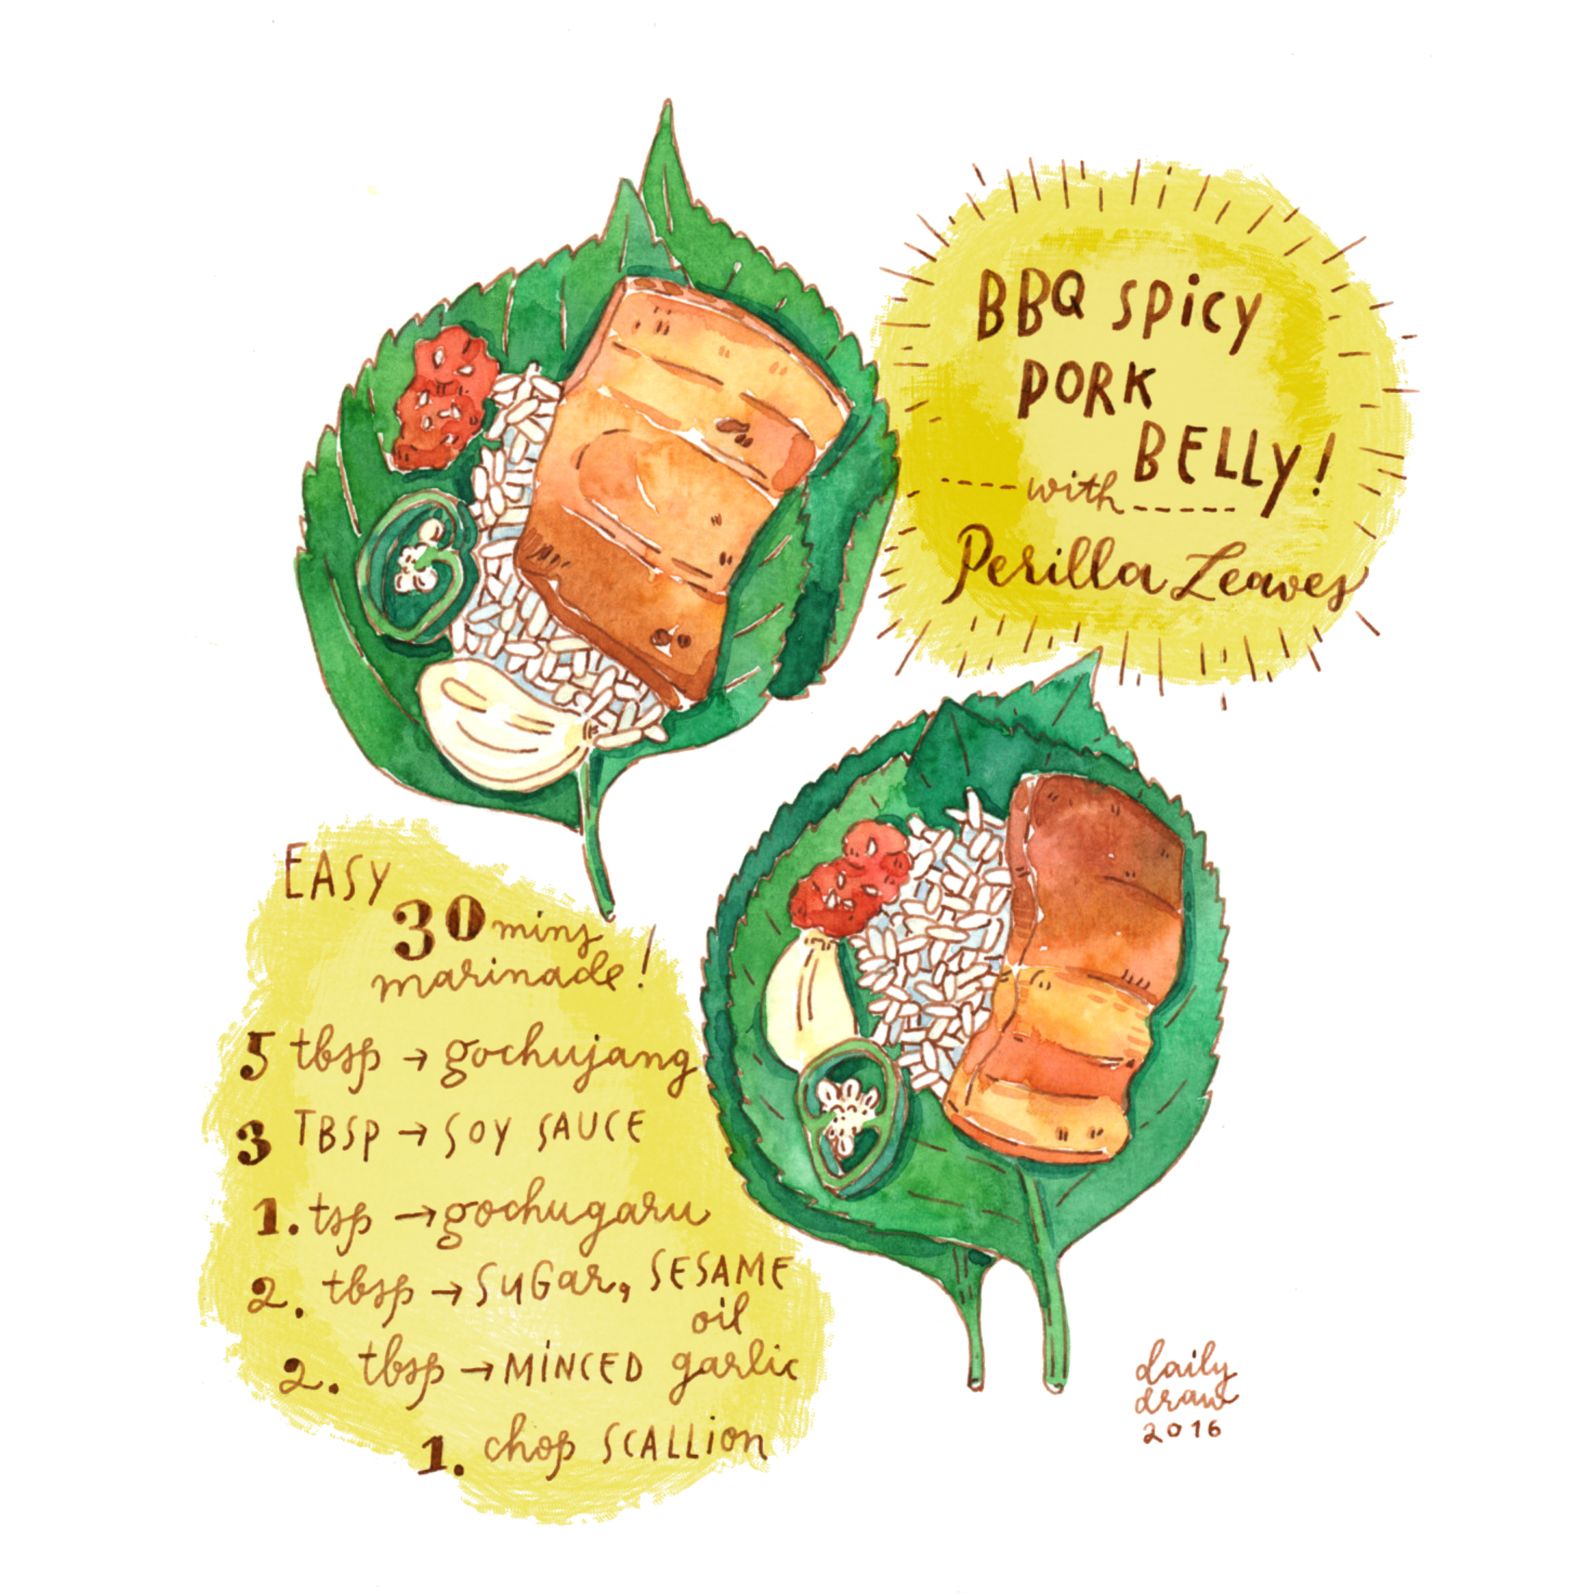 BBQ Spicy
PORK
BELLY!
with
Perilla Leaves
EASY
30 mins
marinade!
5 tbsp → gochujang
3 TBSP → SOY SAUCE
1. tsp → gochugaru
2. tbsp → SuGar, SESAME
oil
2. tbsp → MiNCED garlic
1. chop SCALLion
daily
draw
2016